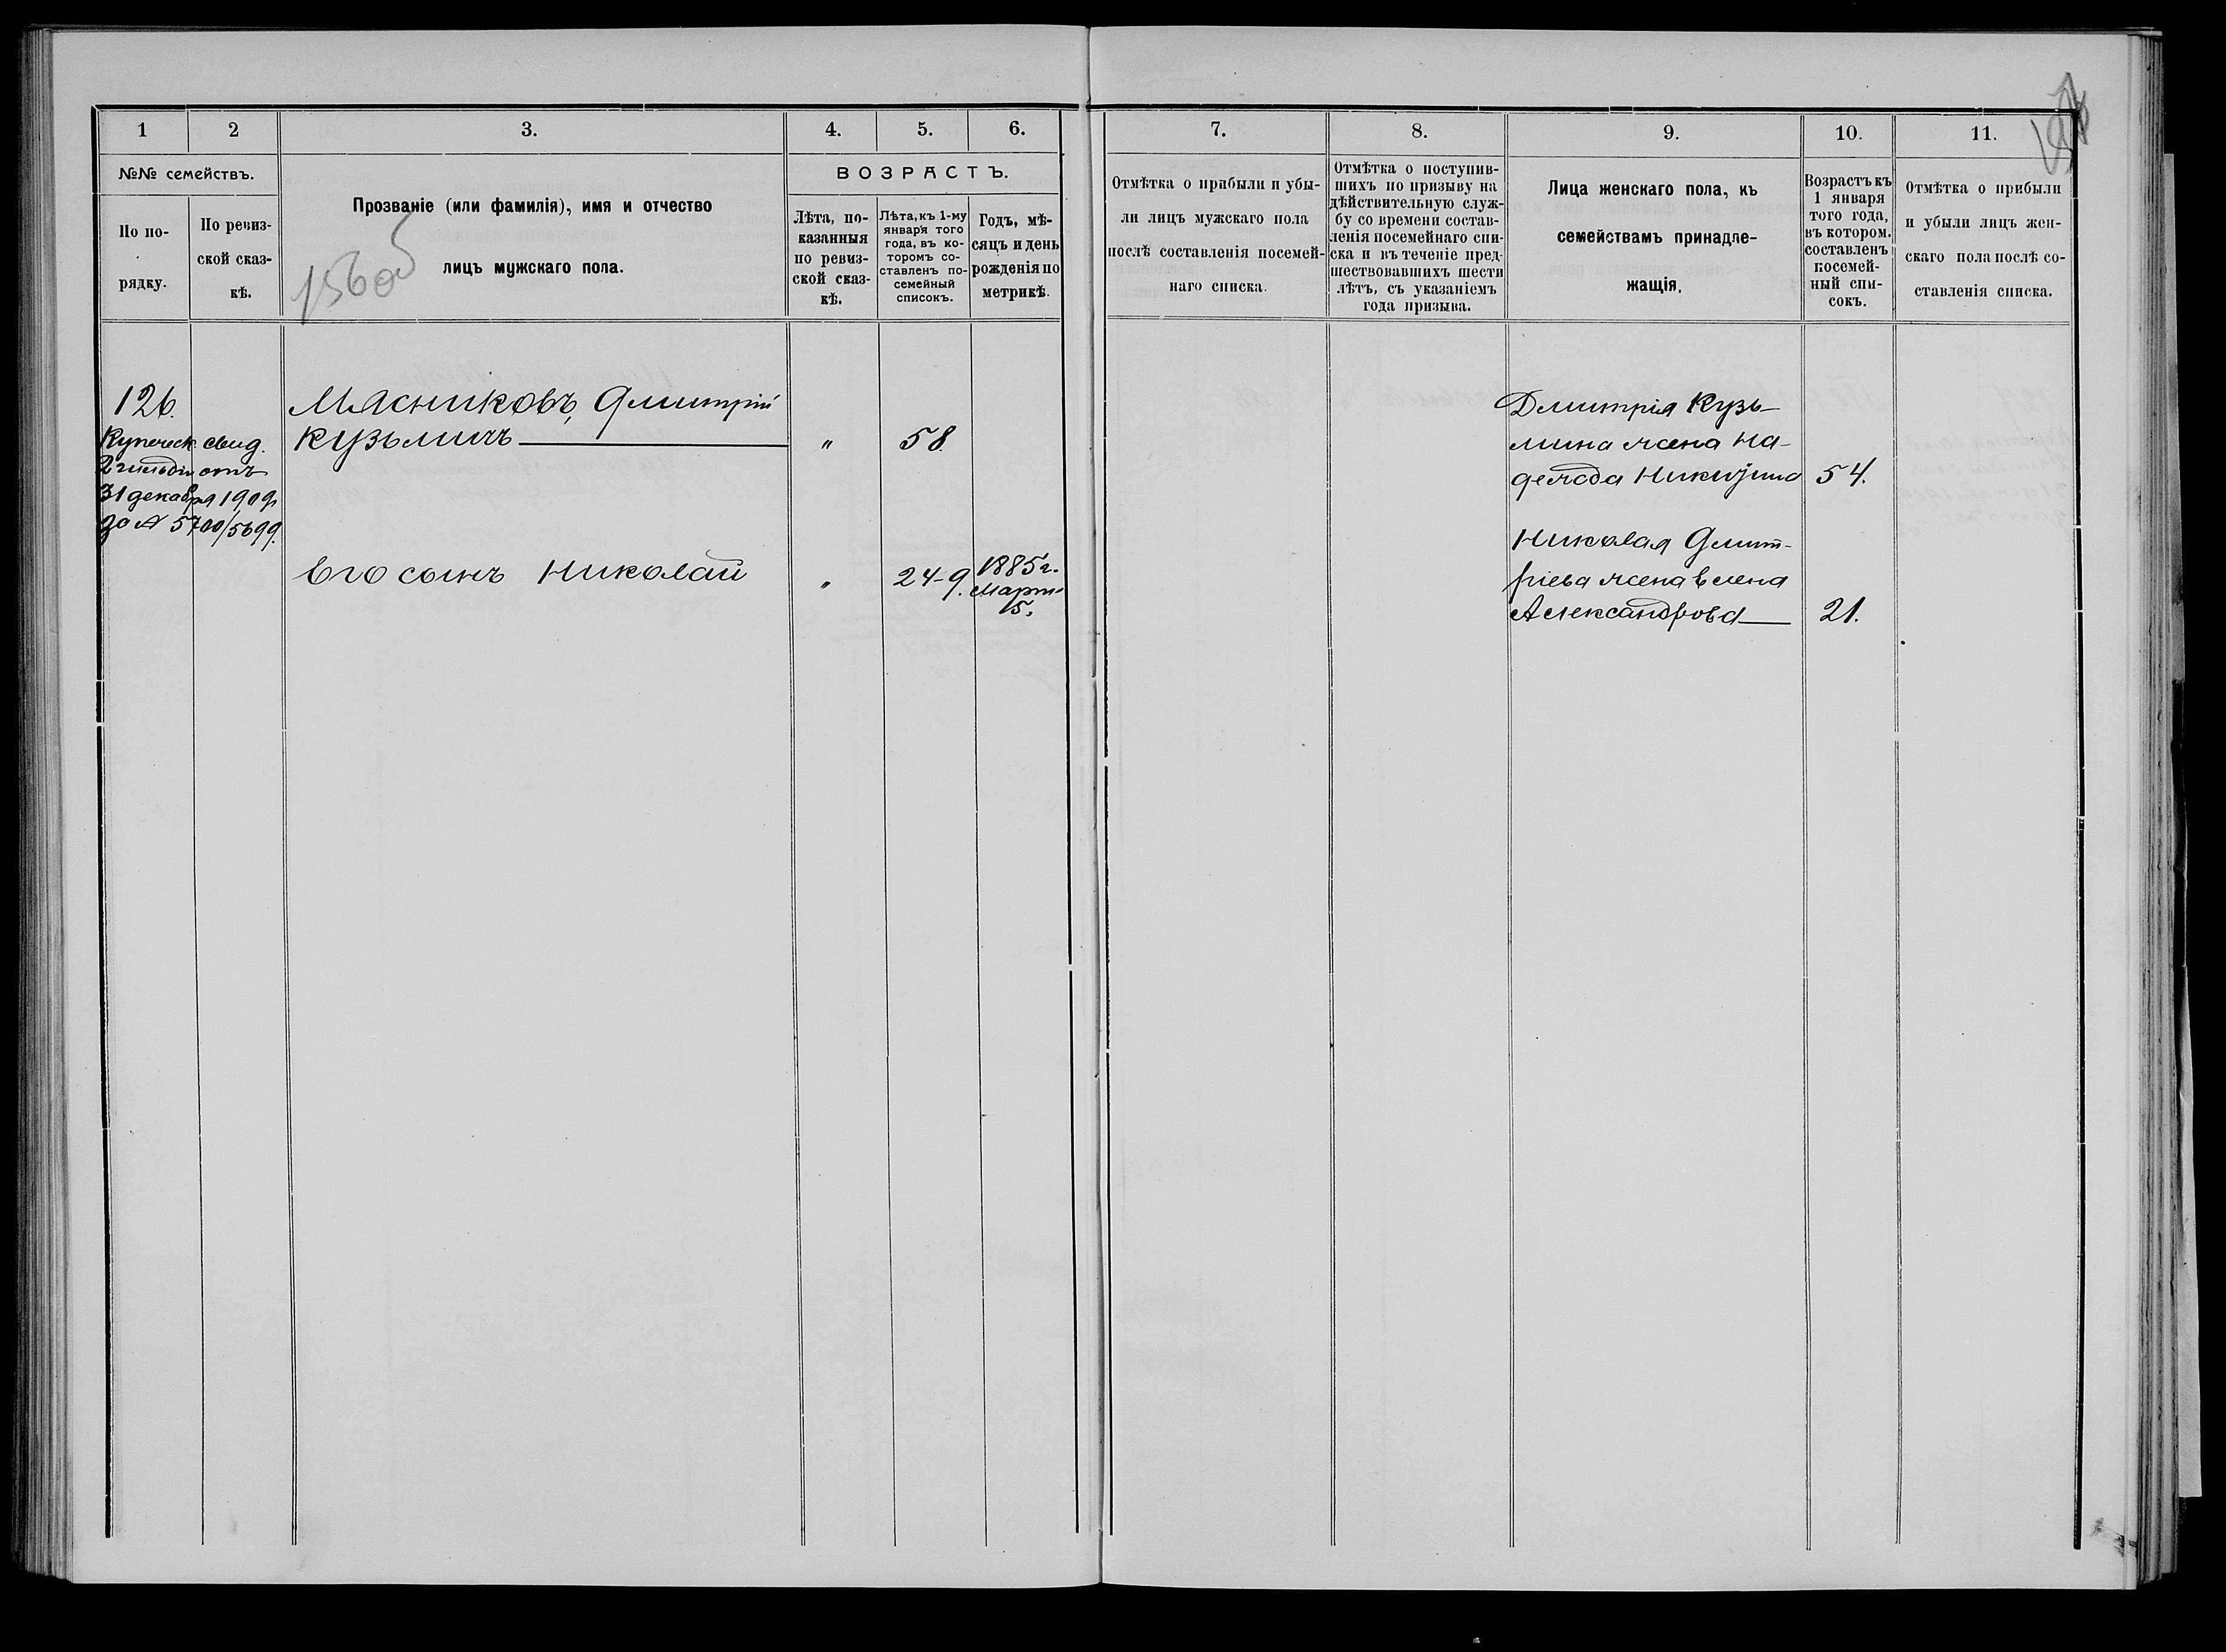 1
2
3.
4.
5.
6.
№№ семействъ.
По по-
рядку.
По ревиз-
ской сказ-
кѣ.
Прозваніе (или фамилія), имя и отчество
лицъ мужскаго пола.
ВОЗРАСТЪ.
Лѣта, по-
казанныя
по ревиз-
ской сказ-
кѣ.
Лѣта, къ 1-му
января того
года, въ ко-
торомъ со-
ставленъ по-
семейный
списокъ.
Годъ, мѣ-
сяцъ и день
рожденія по
метрикѣ.
156об
126.
Купеческ. свид.
2 гильдіи отъ
31 декабря 1909г
за № 5700/5699.
Мясниковъ, Дмитрій
Кузьмичъ
"
58.
Его сынъ Николай
"
24-9.
1885 г.
Марта
15.
7.
8.
9.
10.
11.
Отмѣтка о прибыли и убы-
ли лицъ мужскаго пола
послѣ составленія посемей-
наго списка.
Отмѣтка о поступив-
шихъ по призыву на
дѣйствительную служ-
бу со времени состав-
ленія посемейнаго спи-
ска и въ теченіе пред-
шествовавшихъ шести
лѣтъ, съ указаніемъ
года призыва.
Лица женскаго пола, къ
семействамъ принадле-
жащія.
Возрастъ къ
1 января
того года,
въ котором.
составленъ
посемей-
ный спи-
сокъ.
Отмѣтка о прибыли
и убыли лицъ жен-
скаго пола послѣ со-
ставленія списка.
Дмитрія Кузь-
мина жена На-
дежда Никитина 54.
Николая Дмит-
ріева жена Елена
Александрова 21.